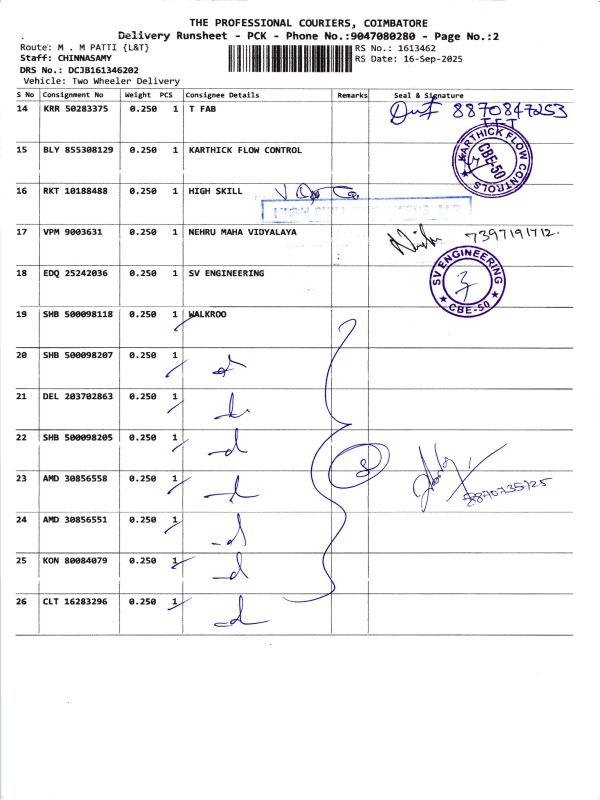 THE PROFESSIONAL COURIERS, COIMBATORE
Delivery Runsheet - PCK - Phone No.:9047080280 - Page No.:2
Route: M . M PATTI {L&T} RS No.: 1613462
Staff: CHINNASAMY RS Date: 16-Sep-2025
DRS No.: DCJB161346202
Vehicle: Two Wheeler Delivery
S No Consignment No Weight PCS Consignee Details Remarks Seal & Signature
14 KRR 50283375 0.250 1 T FAB 8870847253
TFT
15 BLY 855308129 0.250 1 KARTHICK FLOW CONTROL
KARTHICK FLOW CONTROLS
CBE-50
16 RKT 10188488 0.250 1 HIGH SKILL
17 VPM 9003631 0.250 1 NEHRU MAHA VIDYALAYA 7397191712.
18 EDQ 25242036 0.250 1 SV ENGINEERING
SV ENGINEERING
CBE-50
19 SHB 500098118 0.250 1 WALKROO
20 SHB 500098207 0.250 1
21 DEL 203702863 0.250 1
22 SHB 500098205 0.250 1
8
23 AMD 30856558 0.250 1
8870735725
24 AMD 30856551 0.250 1
25 KON 80084079 0.250 1
26 CLT 16283296 0.250 1